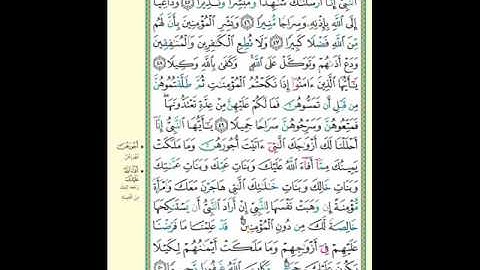 ٱلنَّبِيُّ إِنَّآ أَرْسَلْنَٰكَ شَٰهِدًا وَمُبَشِّرًا وَنَذِيرًا ٤٥ وَدَاعِيًا
إِلَى ٱللَّهِ بِإِذْنِهِۦ وَسِرَاجًا مُّنِيرًا ٤٦ وَبَشِّرِ ٱلْمُؤْمِنِينَ بِأَنَّ لَهُم
مِّنَ ٱللَّهِ فَضْلًا كَبِيرًا ٤٧ وَلَا تُطِعِ ٱلْكَٰفِرِينَ وَٱلْمُنَٰفِقِينَ
وَدَعْ أَذَىٰهُمْ وَتَوَكَّلْ عَلَى ٱللَّهِ وَكَفَىٰ بِٱللَّهِ وَكِيلًا ٤٨
يَٰٓأَيُّهَا ٱلَّذِينَ ءَامَنُوٓا۟ إِذَا نَكَحْتُمُ ٱلْمُؤْمِنَٰتِ ثُمَّ طَلَّقْتُمُوهُنَّ
مِن قَبْلِ أَن تَمَسُّوهُنَّ فَمَا لَكُمْ عَلَيْهِنَّ مِنْ عِدَّةٍ تَعْتَدُّونَهَا
فَمَتِّعُوهُنَّ وَسَرِّحُوهُنَّ سَرَاحًا جَمِيلًا ٤٩ يَٰٓأَيُّهَا ٱلنَّبِيُّ إِنَّآ
أَحْلَلْنَا لَكَ أَزْوَٰجَكَ ٱلَّٰتِىٓ ءَاتَيْتَ أُجُورَهُنَّ وَمَا مَلَكَتْ
يَمِينُكَ مِمَّآ أَفَآءَ ٱللَّهُ عَلَيْكَ وَبَنَاتِ عَمِّكَ وَبَنَاتِ عَمَّٰتِكَ
وَبَنَاتِ خَالِكَ وَبَنَاتِ خَٰلَٰتِكَ ٱلَّٰتِى هَاجَرْنَ مَعَكَ وَٱمْرَأَةً
مُّؤْمِنَةً إِن وَهَبَتْ نَفْسَهَا لِلنَّبِىِّ إِنْ أَرَادَ ٱلنَّبِىُّ أَن يَسْتَنكِحَهَا
خَالِصَةً لَّكَ مِن دُونِ ٱلْمُؤْمِنِينَ قَدْ عَلِمْنَا مَا فَرَضْنَا
عَلَيْهِمْ فِىٓ أَزْوَٰجِهِمْ وَمَا مَلَكَتْ أَيْمَٰنُهُمْ لِكَيْلَا
يَكُونَ عَلَيْكَ حَرَجٌ وَكَانَ ٱللَّهُ غَفُورًا رَّحِيمًا
أُجُورَهُنَّ